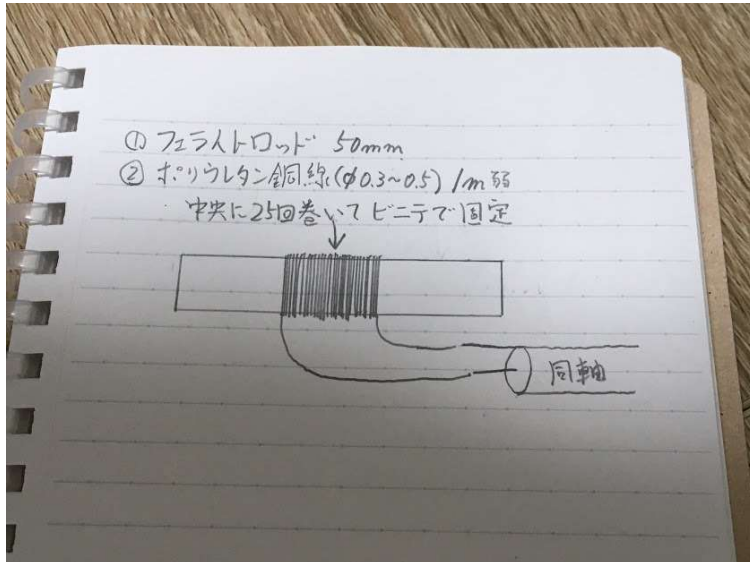 ① フェライトロッド 50mm
② ポリウレタン銅線(φ0.3~0.5) 1m弱
中央に25回巻いてビニテで固定
同軸